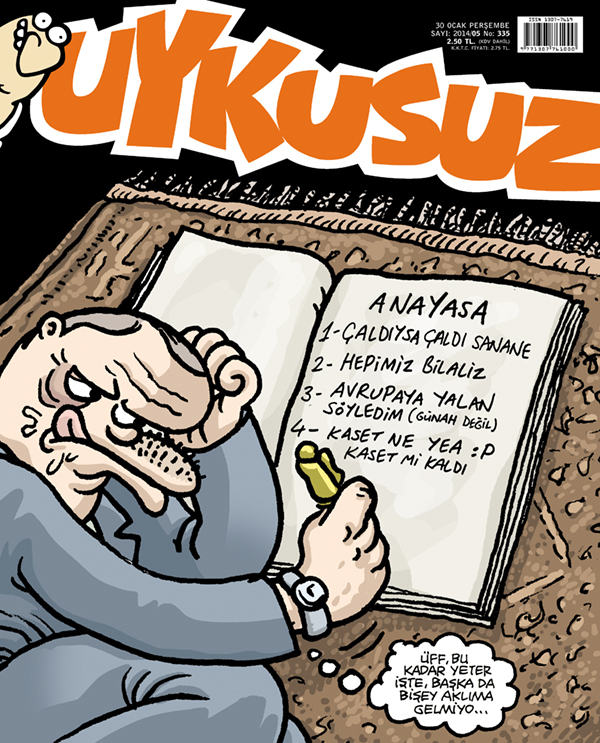 30 OCAK PERŞEMBE
SAYI: 2014/05 No: 335
2.50 TL. (KDV DAHİL)
K.K.T.C. FİYATI: 2.75 TL.
ISSN 1307-7619
9 771307 761000
UYKUSUZ
ANAYASA
1- ÇALDIYSA ÇALDI SANANE
2- HEPİMİZ BİLALİZ
3- AVRUPAYA YALAN
SÖYLEDİM (GÜNAH DEĞİL)
4- KASET NE YEA :P
KASET Mİ KALDI
ÜFF, BU
KADAR YETER
İŞTE, BAŞKA DA
BİŞEY AKLIMA
GELMİYO...